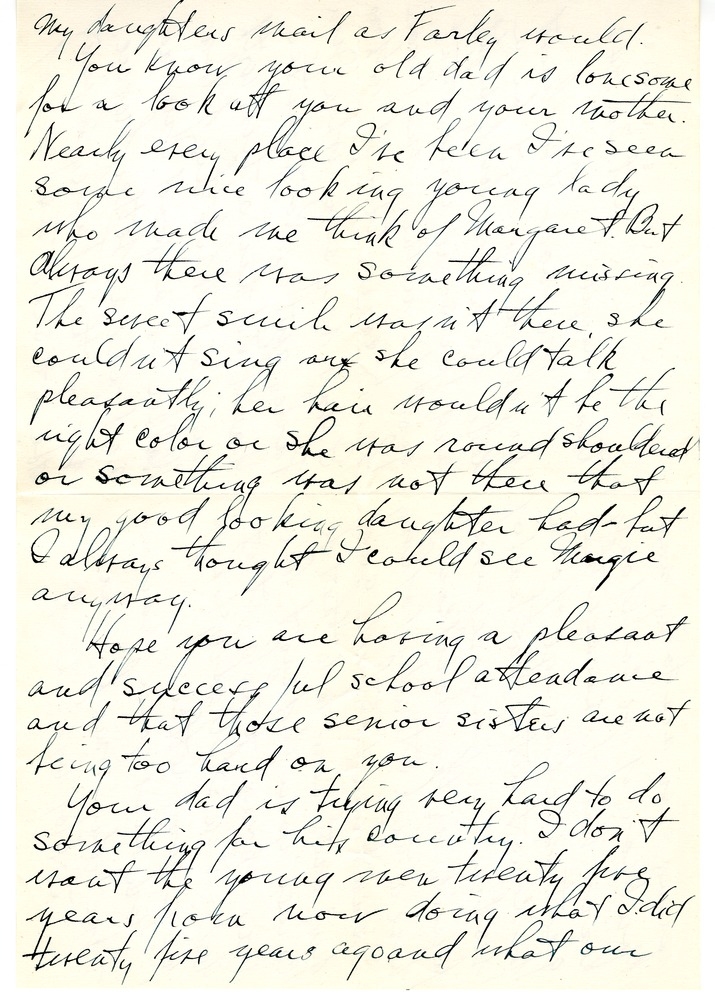 my daughters mail as Farley would.
You know your old dad is lonesome
for a look att you and your mother.
Nearly every place I've been I've seen
some nice looking young lady
who made me think of Margaret. But
always there was something missing.
The sweet smile wasn't there, she
couldn't sing or she could talk
pleasantly; her hair wouldn't be the
right color or she was round shouldered
or something was not there that
my good looking daughter had - but
I always thought I could see Margie
anyway.
Hope you are having a pleasant
and successful school attendance
and that those senior sisters are not
being too hard on you.
Your dad is trying very hard to do
something for his country. I don't
want the young men twenty five
years from now doing what I did
twenty five years ago and what our